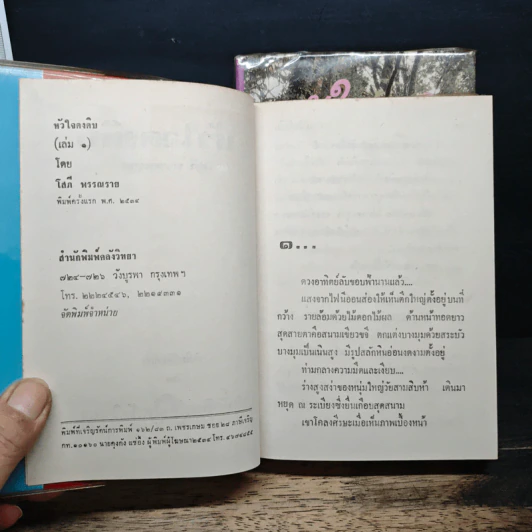 หัวใจดงดิบ
(เล่ม ๑)
โดย
โสภี พรรณราย
พิมพ์ครั้งแรก พ.ศ. ๒๕๓๔
สำนักพิมพ์คลังวิทยา
๗๒๔-๗๒๖ วังบูรพา กรุงเทพฯ
โทร. ๒๒๒๔๕๔๖, ๒๒๑๙๓๓๑
จัดพิมพ์จำหน่าย
พิมพ์ที่เจริญรัตน์การพิมพ์ ๑๖๒/๘๓ ถ. เพชรเกษม ซอย ๒๘ ภาษีเจริญ
กท. ๑๐๑๖๐ ผู้พิมพ์ผู้โฆษณา๒๕๓๔ โทร.
๑...
ดวงอาทิตย์ลับขอบฟ้านานแล้ว
แสงจากไฟนีออนส่องให้เห็นตึกใหญ่ตั้งอยู่บนที่
กว้าง รายล้อมด้วยไม้ดอกไม้ผล ด้านหน้าทอดยาว
สุดสายตาคือสนามเขียวขจี ตกแต่งบางมุมด้วยสระบัว
บางมุมเป็นเนินสูง มีรูปสลักหินอ่อนงดงามตั้งอยู่
ท่ามกลางความมืดและเงียบ....
ร่างสูงสง่าของหนุ่มใหญ่วัยสามสิบห้า เดินมา
หยุด ณ ระเบียงซึ่งยื่นเกือบสุดสนาม
เขาโคลงศีรษะเมื่อเห็นภาพเบื้องหน้า